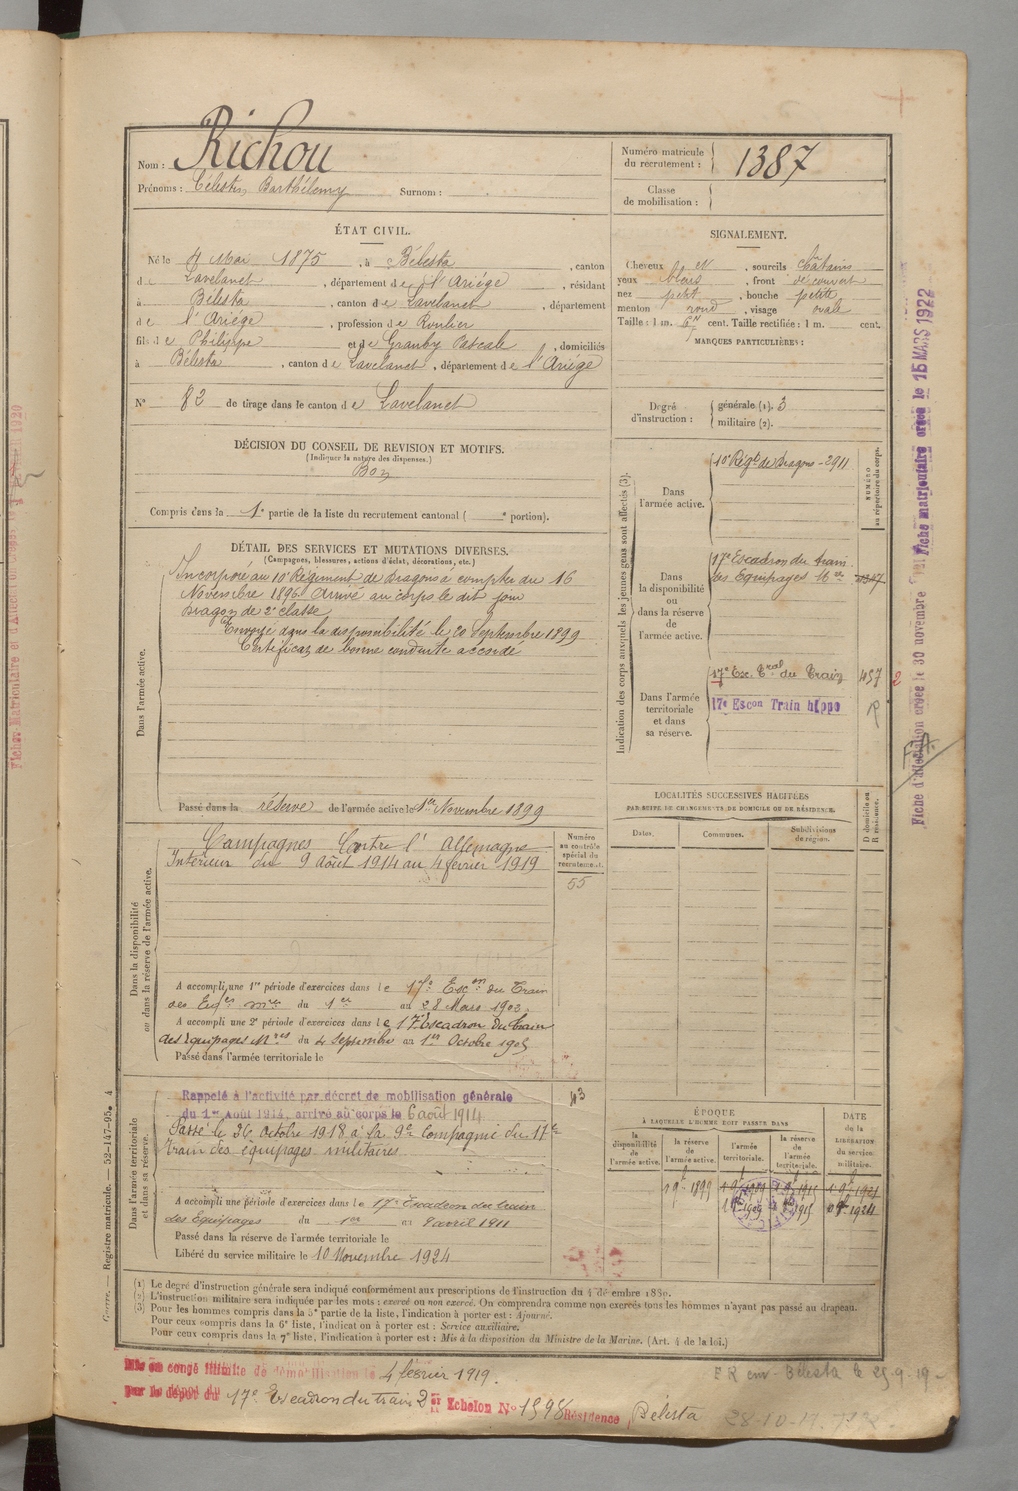 Nom : Richou
Prénoms : Célestin Barthélemy Surnom :
Numéro matricule du recrutement : 1387
Classe de mobilisation :
ÉTAT CIVIL.
Né le Mai 1875, à Bélesta, canton
de Lavelanet, département de l'Ariège, résidant
à Bélesta, canton de Lavelanet, département
de l'Ariège, profession de Roulier
fils de Philippe et de Granby Pascale, domiciliés
à Bélesta, canton de Lavelanet, département de l'Ariège
N° 82 de tirage dans le canton de Lavelanet
SIGNALEMENT.
Cheveux N, sourcils châtains
yeux bleus, front découvert
nez petit, bouche petite
menton rond, visage ovale
Taille : 1 m. cent. Taille rectifiée : 1 m. cent.
MARQUES PARTICULIÈRES :
Degré d'instruction : générale (1). 3
militaire (2).
DÉCISION DU CONSEIL DE REVISION ET MOTIFS.
(Indiquer la nature des dispenses.)
Bon
Compris dans la 1e partie de la liste du recrutement cantonal ( e portion).
DÉTAIL DES SERVICES ET MUTATIONS DIVERSES.
(Campagnes, blessures, actions d'éclat, décorations, etc.)
Dans l'armée active.
Incorporé au 10e Régiment de Dragons à compter du 16
Novembre 1896 Arrivé au corps le dit jour
Dragon de 2e classe
Envoyé dans la disponibilité le 20 Septembre 1899
Certificat de bonne conduite accordé
Passé dans la réserve de l'armée active le 1er Novembre 1899
Indication des corps auxquels les jeunes gens sont affectés (3).
NUMÉRO au répertoire du corps.
Dans l'armée active.
10e Régt de Dragons - 2911
Dans la disponibilité ou dans la réserve de l'armée active.
17e Escadron du train
des Equipages Mres
Dans l'armée territoriale et dans sa réserve.
17e Esc. Tral du Train 457 2
17e Escon Train hippo R
Dans la disponibilité ou dans la réserve de l'armée active.
Campagnes Contre l'Allemagne
Intérieur du 9 Août 1914 au 4 février 1919
Numéro au contrôle spécial du recrutement.
55
A accompli une 1re période d'exercices dans le 17e Escon du Train
des Eqes Mres du 1er au 28 Mars 1903.
A accompli une 2e période d'exercices dans le 17e Escadron du Train
des Equipages Mres du 4 Septembre au 1er Octobre 1905
Passé dans l'armée territoriale le
Dans l'armée territoriale et dans sa réserve.
Rappelé à l'activité par décret de mobilisation générale 43
du 1er Août 1914, arrivé au corps le 6 août 1914
Passé le 26 octobre 1918 à la 9e Compagnie du 17e
train des équipages militaires
A accompli une période d'exercices dans le 17e Escadron du train
des Equipages du 1er au 9 avril 1911
Passé dans la réserve de l'armée territoriale le
Libéré du service militaire le 10 Novembre 1924
LOCALITÉS SUCCESSIVES HABITÉES
PAR SUITE DE CHANGEMENTS DE DOMICILE OU DE RÉSIDENCE.
Dates. Communes. Subdivisions de région. D domicile ou R résidence.
ÉPOQUE
À LAQUELLE L'HOMME DOIT PASSER DANS
la disponibilité de l'armée active. la réserve de l'armée active. l'armée territoriale. la réserve de l'armée territoriale.
DATE de la LIBÉRATION du service militaire.
(1) Le degré d'instruction générale sera indiqué conformément aux prescriptions de l'instruction du 4 décembre 1889.
(2) L'instruction militaire sera indiquée par les mots : exercé ou non exercé. On comprendra comme non exercés tous les hommes n'ayant pas passé au drapeau.
(3) Pour les hommes compris dans la 5e partie de la liste, l'indication à porter est : Ajourné.
Pour ceux compris dans la 6e liste, l'indication à porter est : Service auxiliaire.
Pour ceux compris dans la 7e liste, l'indication à porter est : Mis à la disposition du Ministre de la Marine. (Art. 4 de la loi.)
Mis en congé illimité de démobilisation le 4 février 1919.
par le dépôt du 17e Escadron du train 2er Echelon N° 1598 Résidence Bélesta
Guerre. — Registre matricule. — 52-147-95. 4
Fiche matriculaire créée le 15 MARS 1922
Fiche d'affectation créée le 30 novembre
F.A.